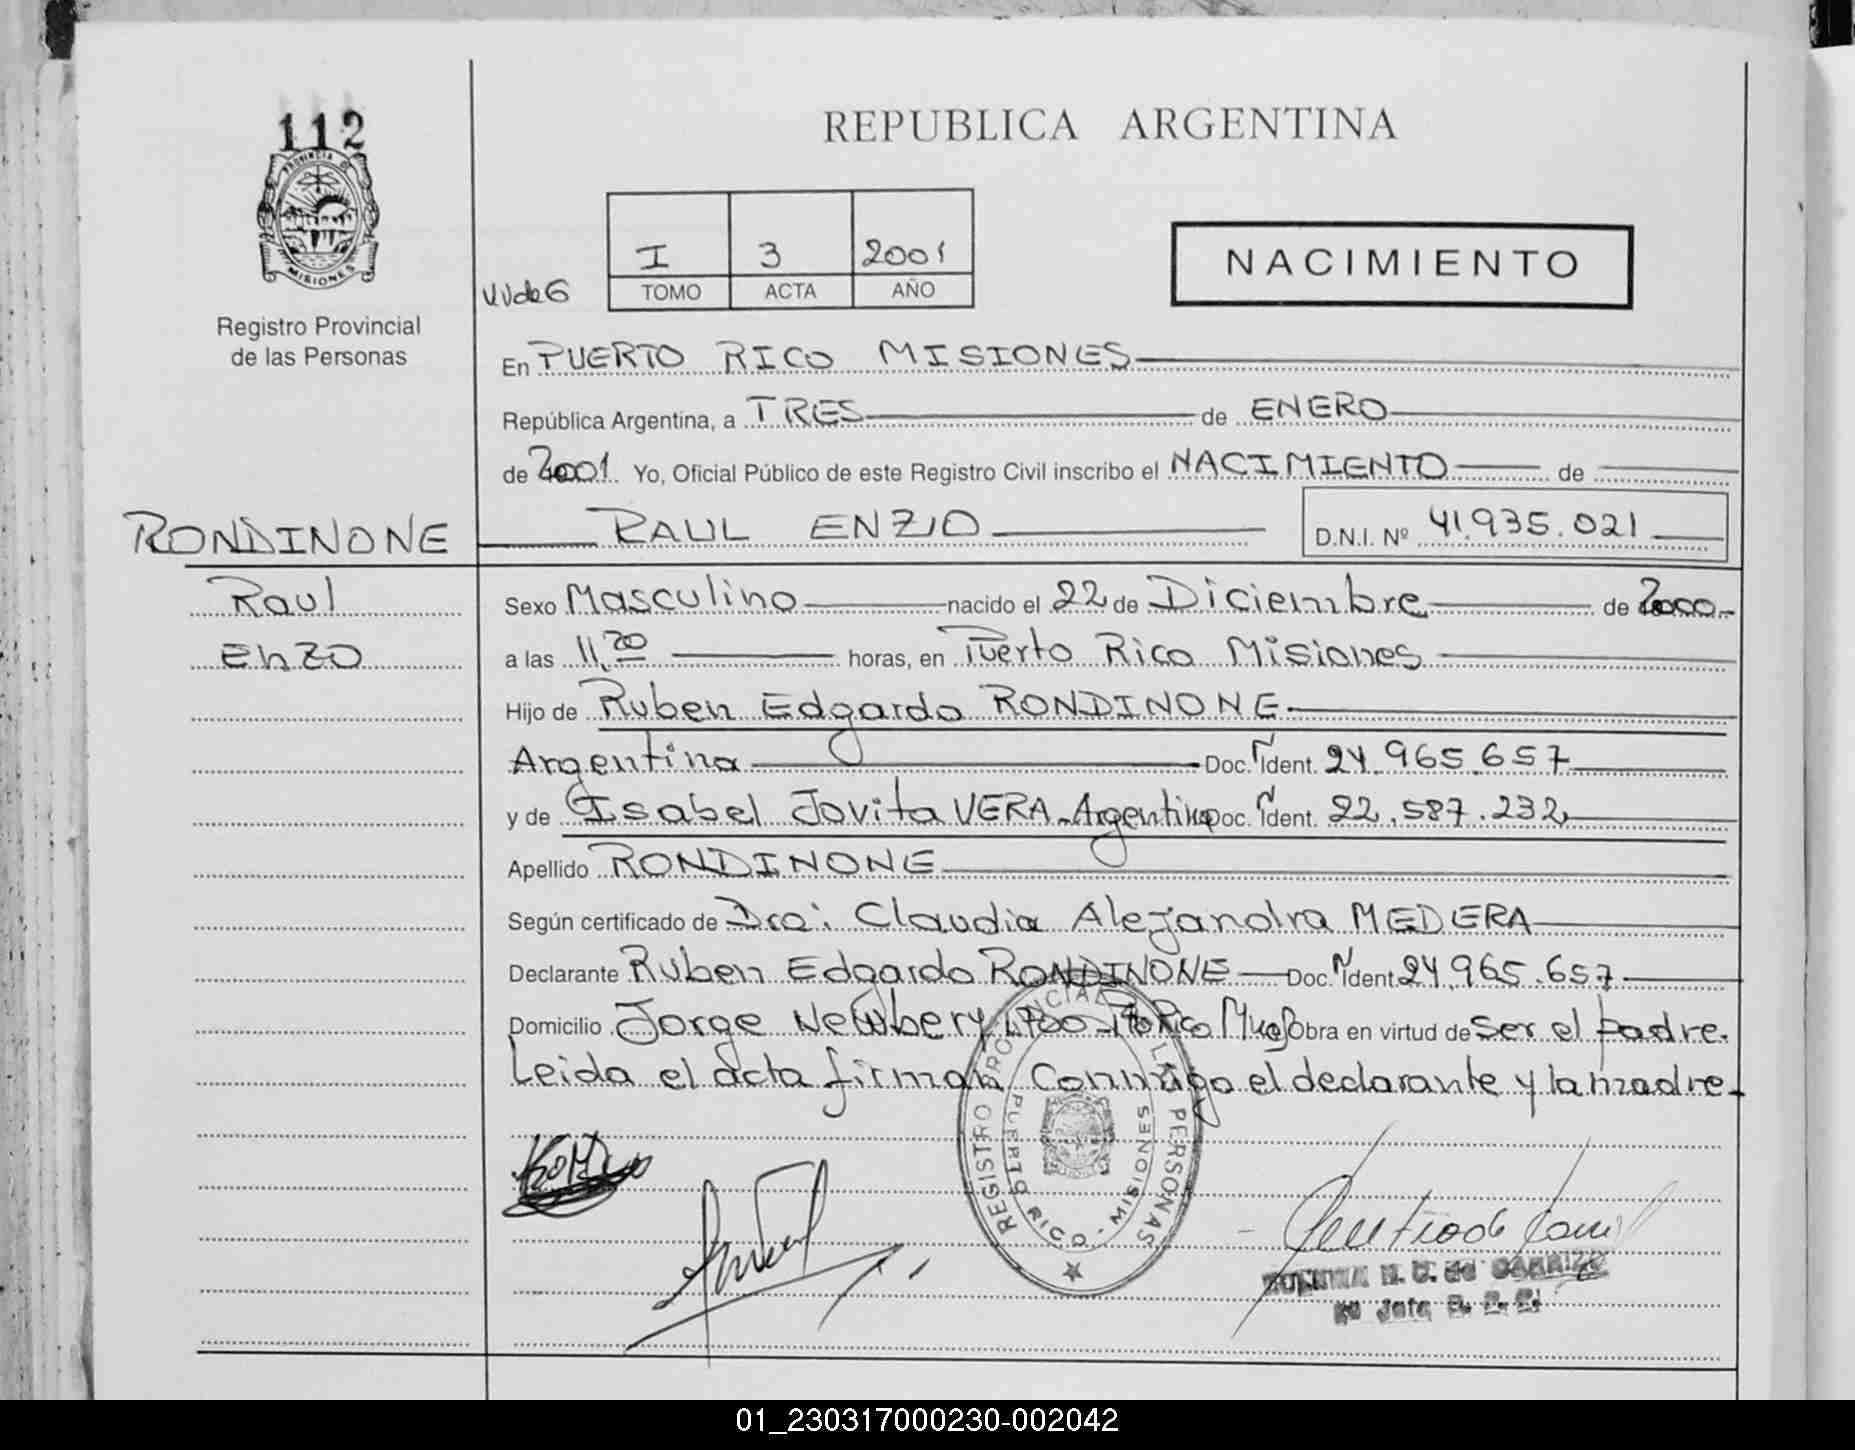 112
PROVINCIA D
MISIONES
Registro Provincial
de las Personas
REPUBLICA ARGENTINA
I 3 2001
TOMO ACTA AÑO
NACIMIENTO
En PUERTO RICO MISIONES
República Argentina, a TRES de ENERO
de 2001 Yo, Oficial Público de este Registro Civil inscribo el NACIMIENTO de
RONDINONE RAUL ENZO D.N.I. Nº 41.935.021
Raul Sexo Masculino nacido el 22 de Diciembre de 2000
Enzo a las 11,20 horas, en Puerto Rico Misiones
Hijo de Ruben Edgardo RONDINONE
Argentina Doc. Ident. 24.965.657
y de Isabel Jovita VERA Argentina Doc. Ident. 22.587.232
Apellido RONDINONE
Según certificado de Dra: Claudia Alejandra MEDERA
Declarante Ruben Edgardo RONDINONE Doc. Ident. 24.965.657
Domicilio Jorge Newbery Pto Rico Mnes Obra en virtud de ser el padre.
Leida el acta firman conmigo el declarante y la madre
REGISTRO PROVINCIAL LAS PERSONAS
PUERTO RICO - MISIONES
de CARRIZO
01_230317000230-002042